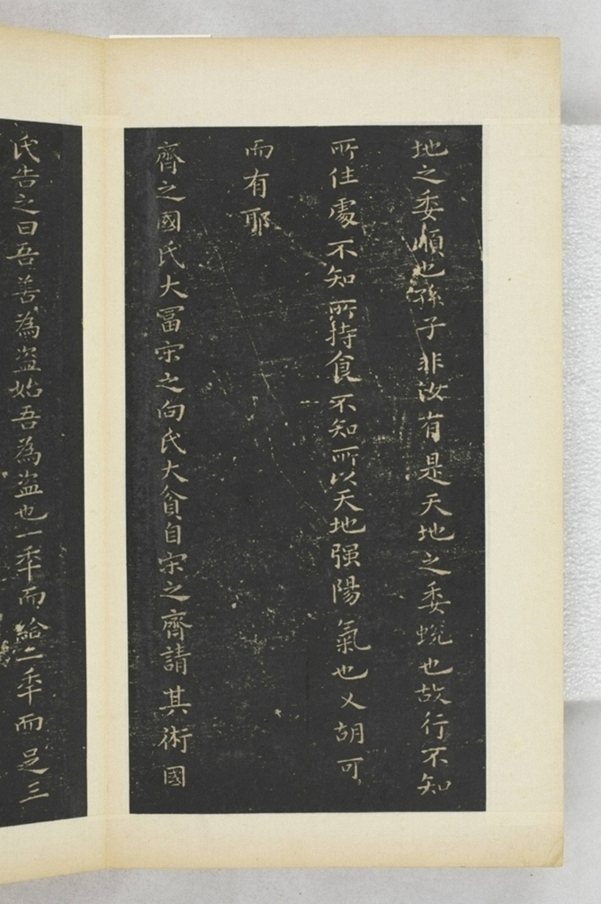 地之委順也孫子非汝有是天地之委蛻也故行不知
所住處不知所持食不知所以天地强陽氣也又胡可
而有耶
齊之國氏大冨宋之向氏大貧自宋之齊請其術國
氏告之曰吾善為盗始吾為盗也一秊而給二秊而足三